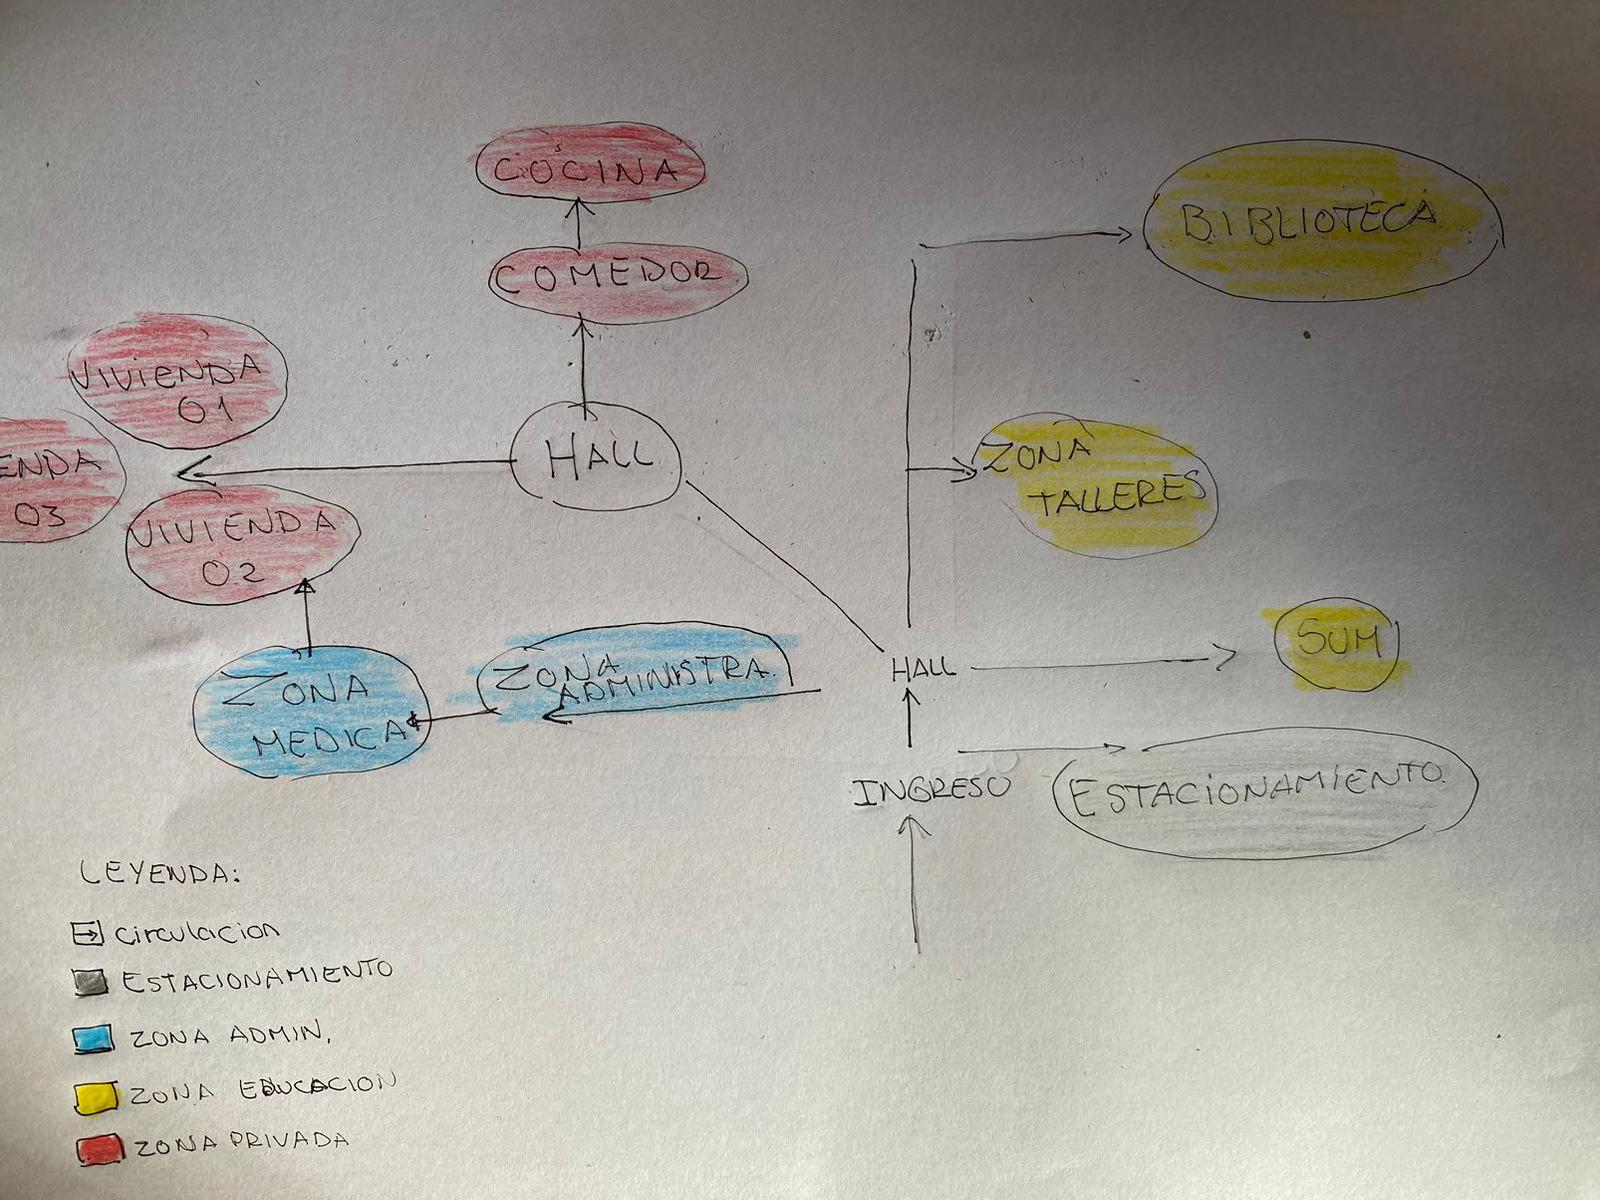 COCINA
COMEDOR
BIBLIOTECA
VIVIENDA
01
HALL
ENDA
03
ZONA
TALLERES
VIVIENDA
02
ZONA
ADMINISTRA.
HALL
SUM
ZONA
MEDICA
INGRESO
ESTACIONAMIENTO
LEYENDA:
circulacion
ESTACIONAMIENTO
ZONA ADMIN.
ZONA EDUCACION
ZONA PRIVADA